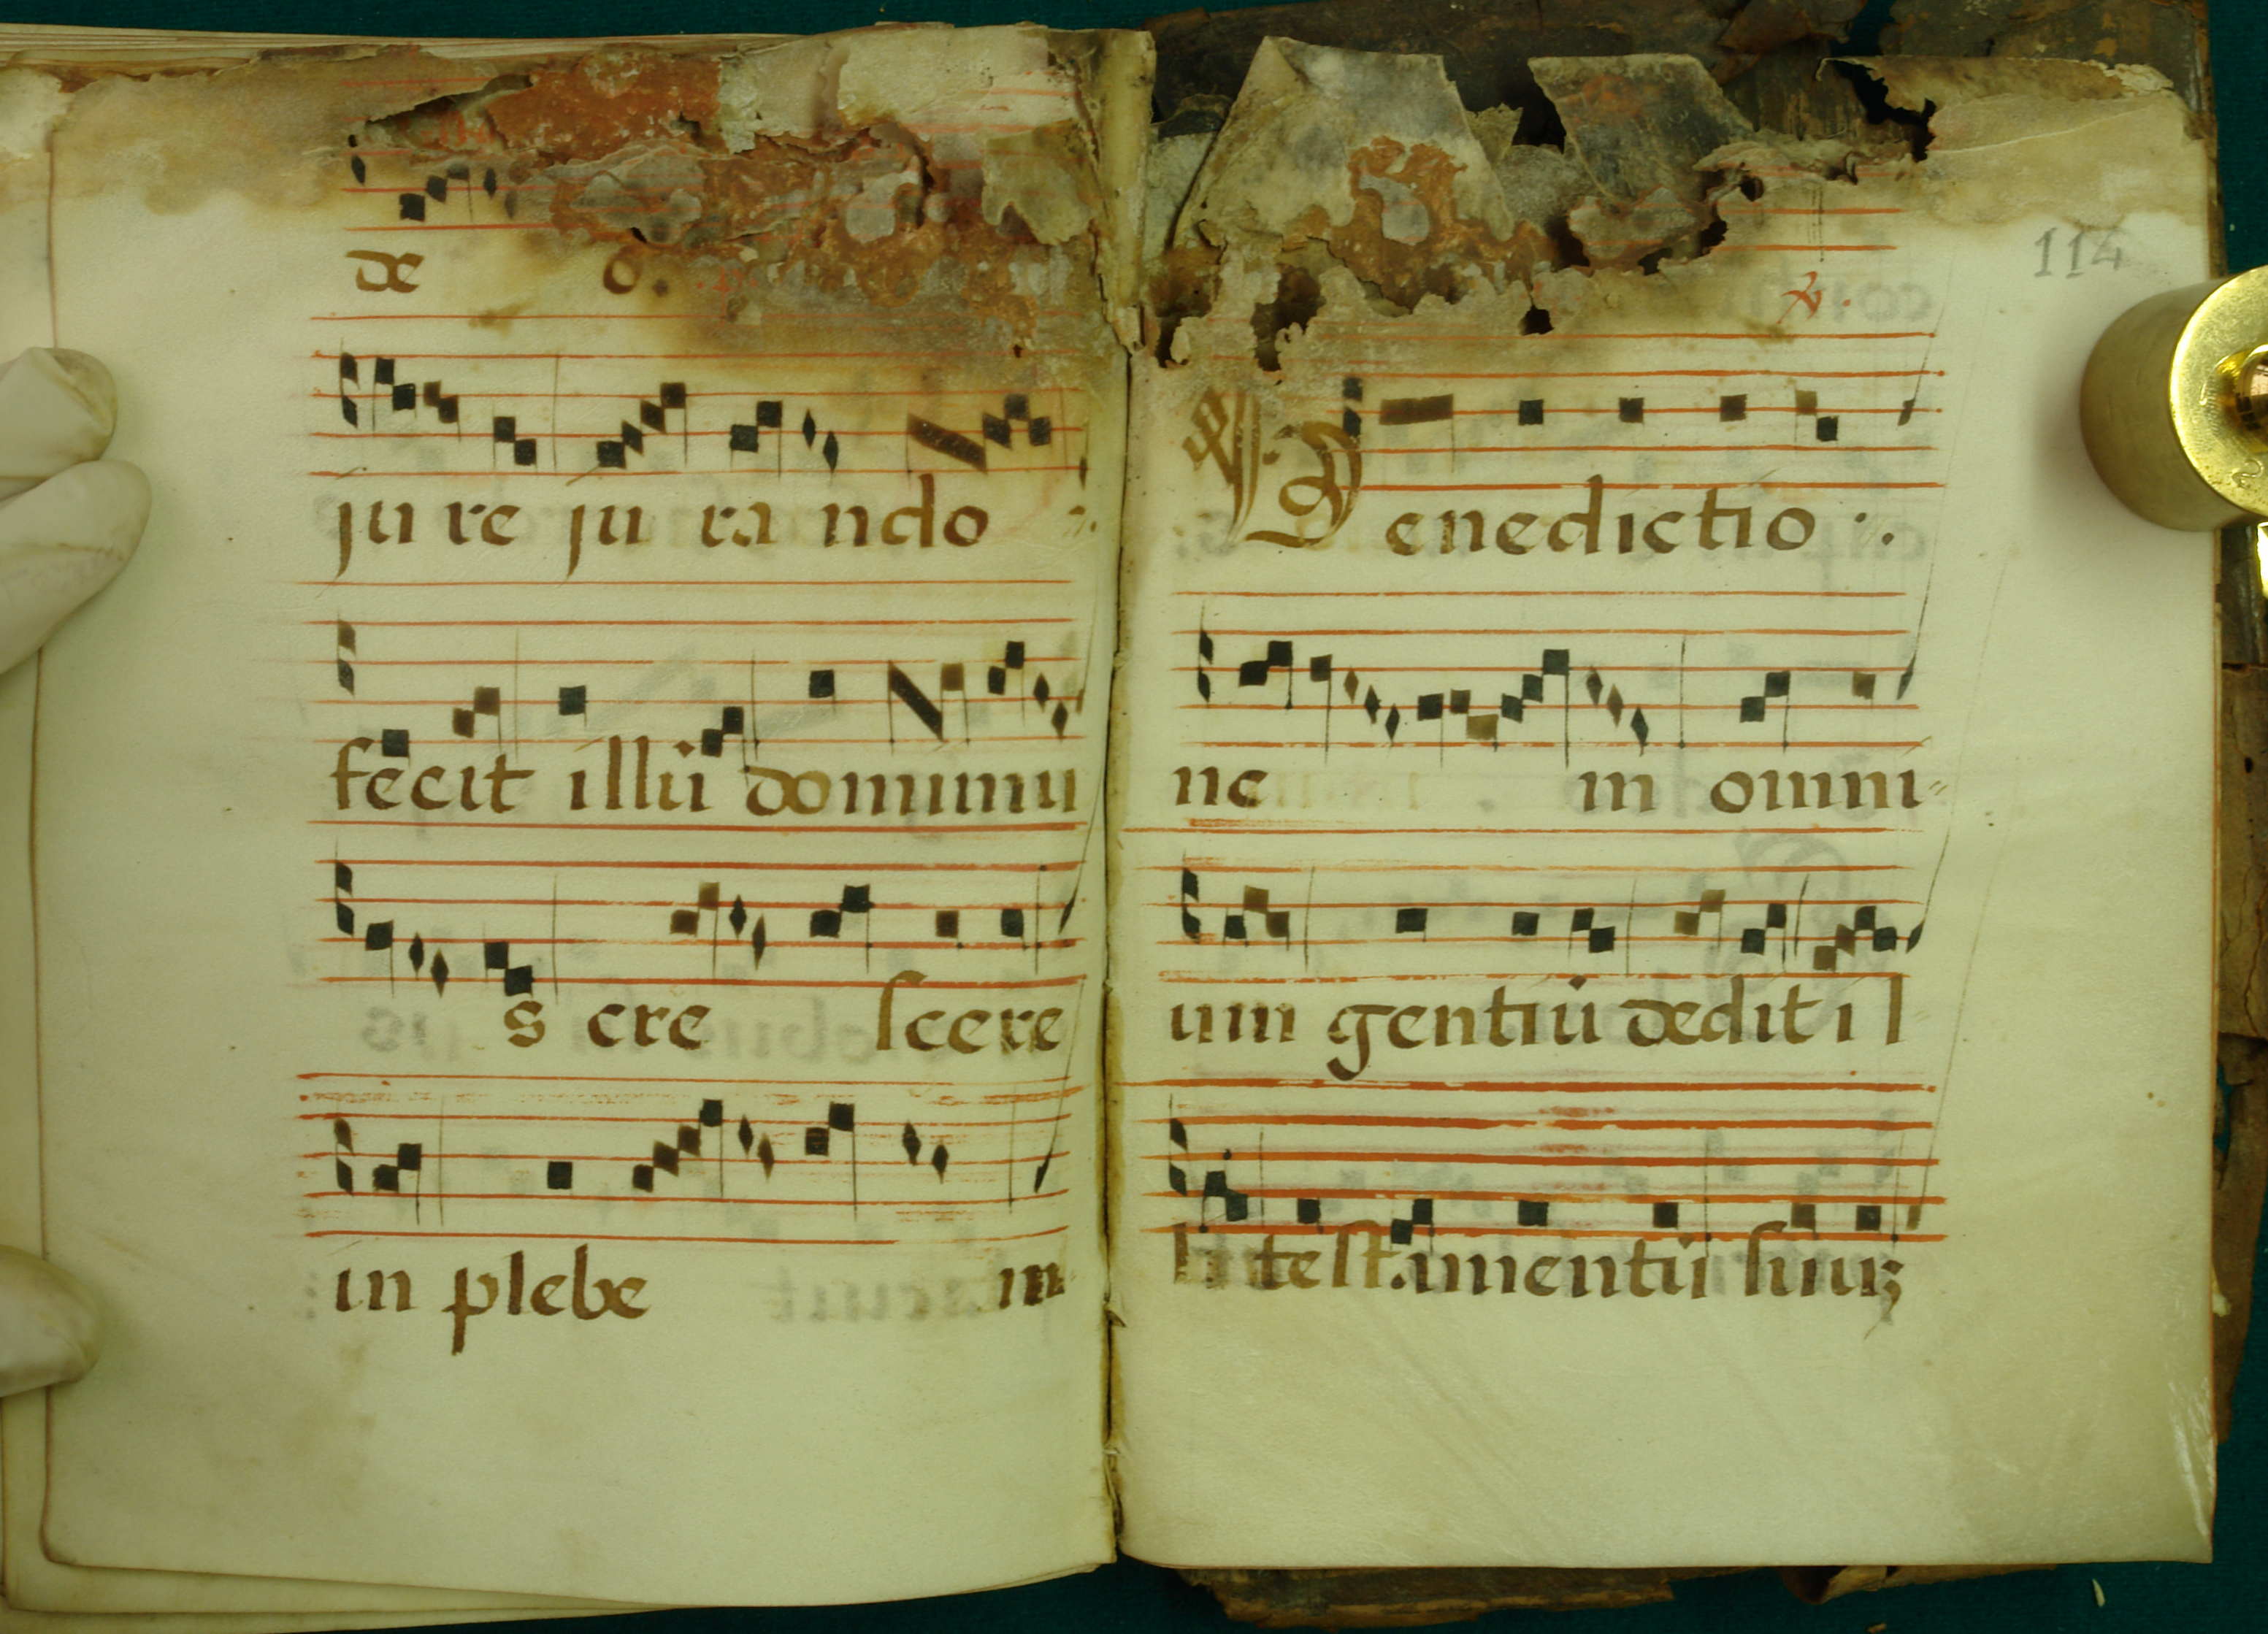 de o.
ju re ju ra ndo
fecit illū dominu
s cre scere
in plebe m
114
℟.
℣. Benedictio.
ne m omni-
um gentiū dedit il
li testamentū suuꝫ